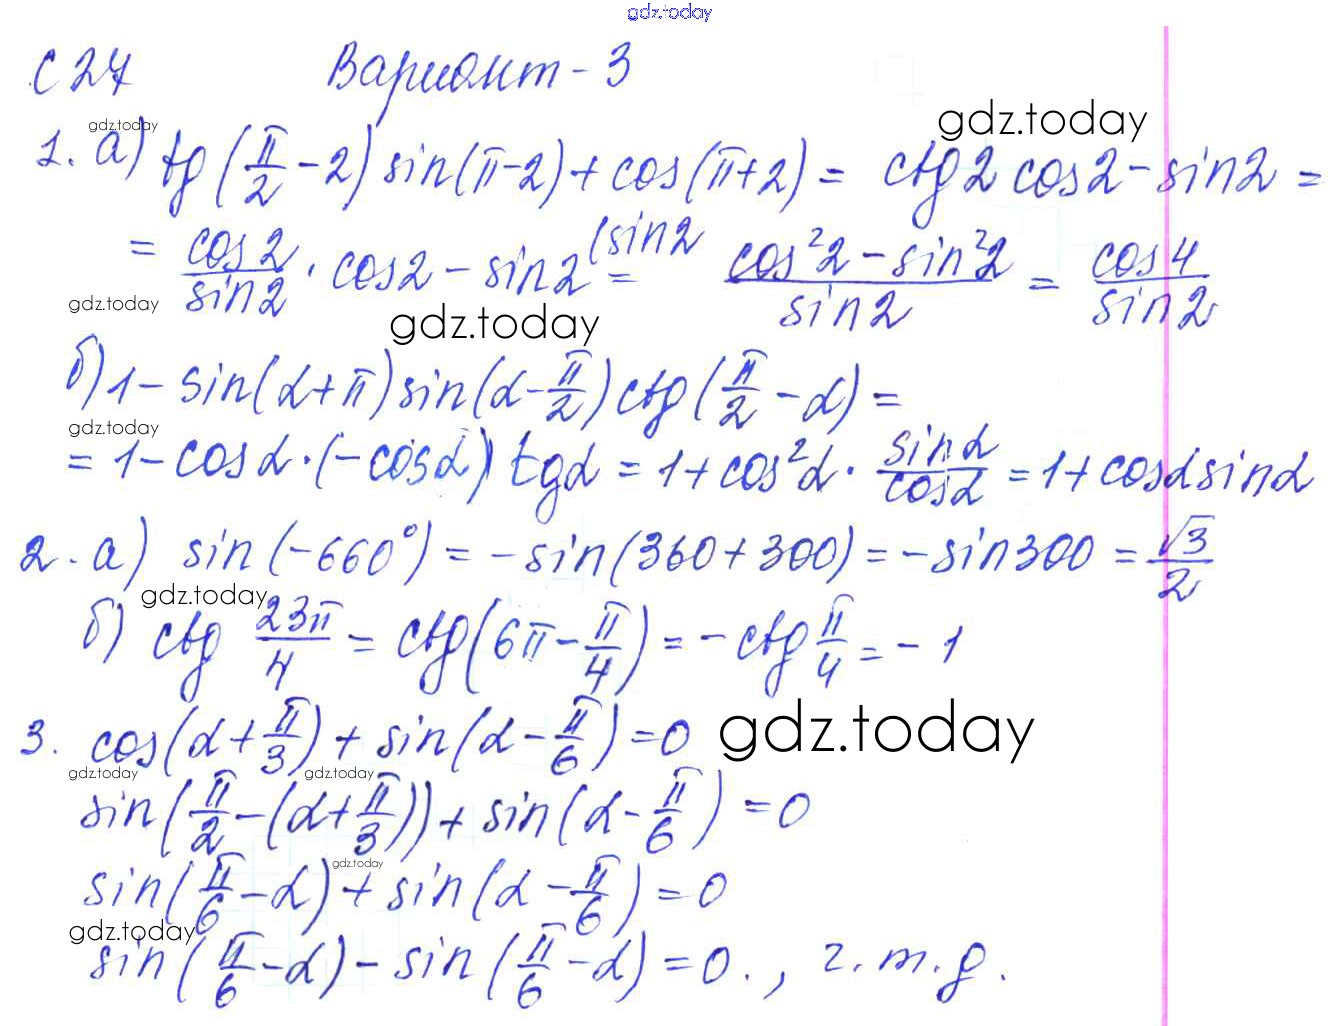 gdz.today
С 27 Вариант - 3
gdz.today gdz.today
1. а) tg(π/2 - 2) sin(π-2) + cos(π+2) = ctg2 cos2 - sin2 =
= cos2/sin2 · cos2 - sin2 (sin2 = cos²2 - sin²2/sin2 = cos4/sin2
gdz.today gdz.today
б) 1 - sin(α+π) sin(α-π/2) ctg(π/2 - α) =
gdz.today
= 1 - cosα · (-cosα) tgα = 1 + cos²α · sinα/cosα = 1 + cosα sinα
2. а) sin(-660°) = - sin(360 + 300) = - sin300 = √3/2
gdz.today
б) ctg 23π/4 = ctg(6π - π/4) = - ctg π/4 = - 1
3. cos(α + π/3) + sin(α - π/6) = 0 gdz.today
gdz.today gdz.today
sin(π/2 - (α + π/3)) + sin(α - π/6) = 0
gdz.today
sin(π/6 - α) + sin(α - π/6) = 0
gdz.today
sin(π/6 - α) - sin(π/6 - α) = 0. , г.т.д.